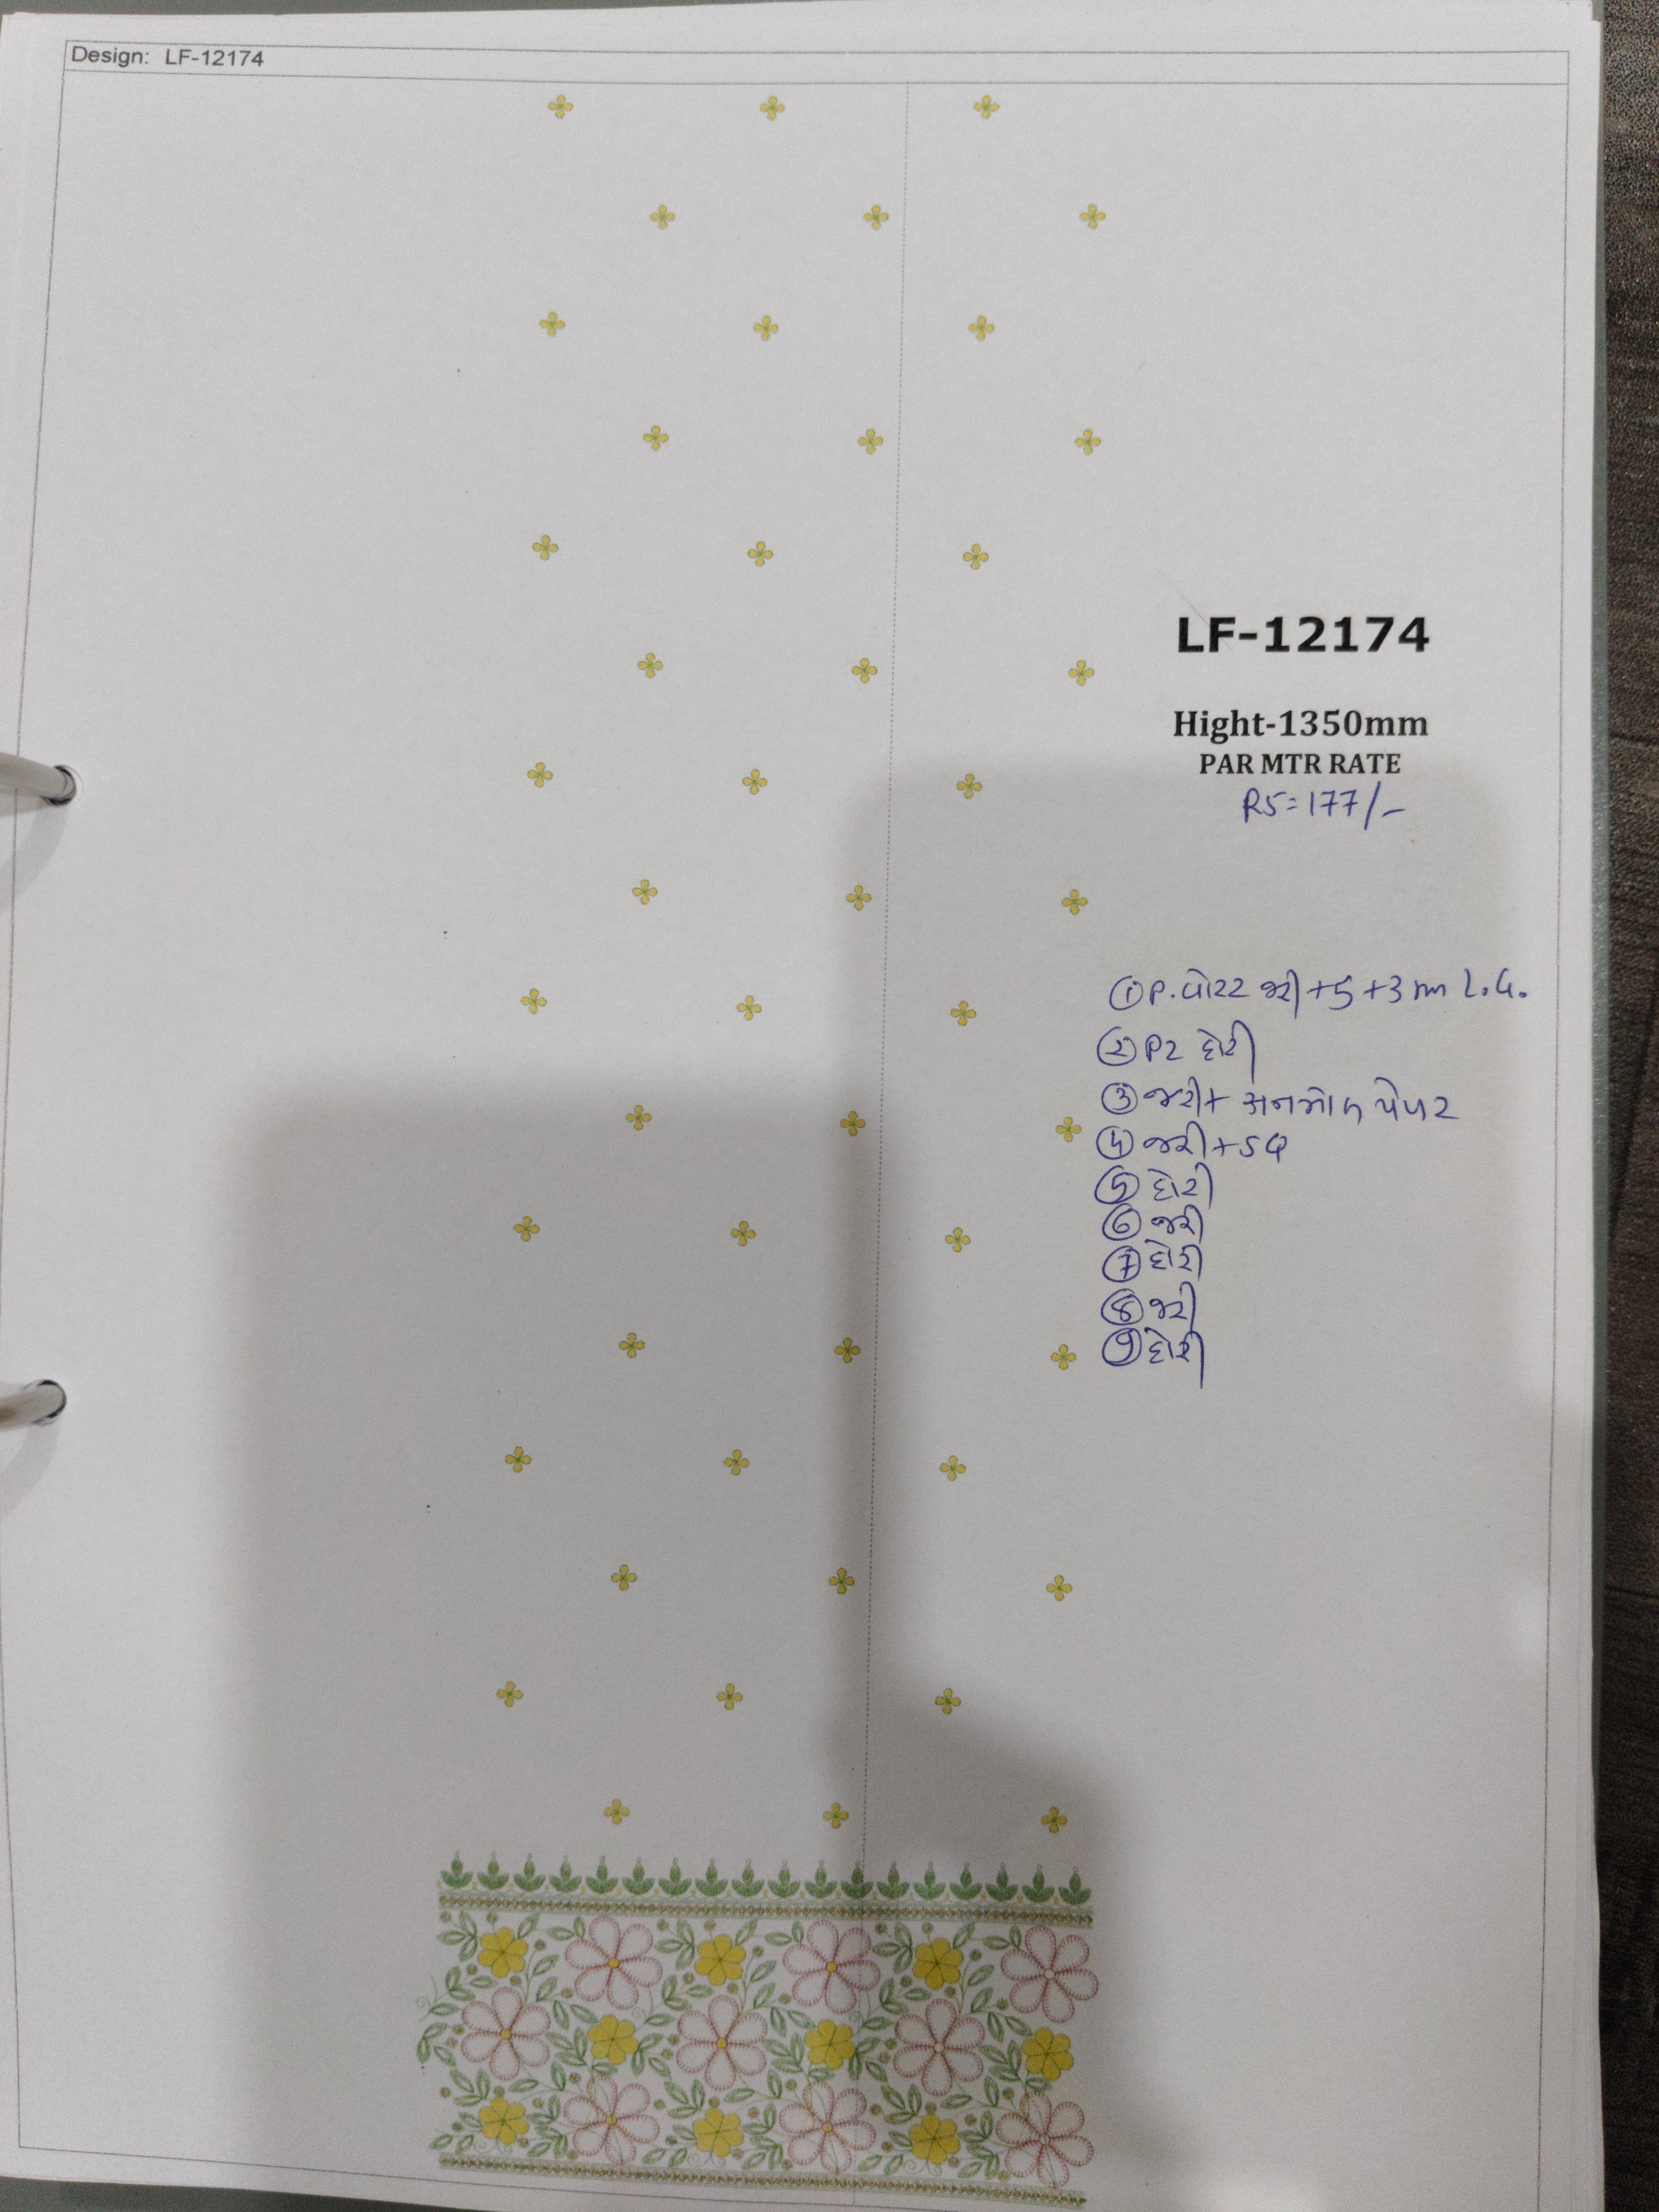 Design: LF-12174
LF-12174
Hight-1350mm
PAR MTR RATE
RS=177/-
① P. વોટર જરી +5 +3 mm
② P2 દોરી
③ જરી + અનમોલ પેપર
④ જરી + SQ
⑤ દોરી
⑥ જરી
⑦ દોરી
⑧ જરી
⑨ દોરી